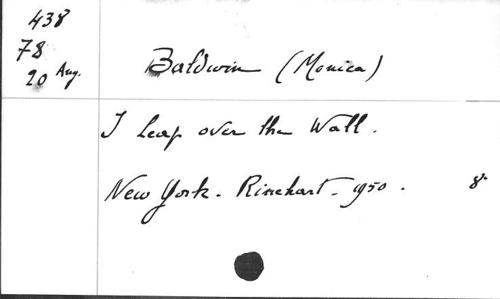 438
78
20 Aug.
Baldwin (Monica)
I Leap over the Wall.
New York. Rinehart. 1950. 8º